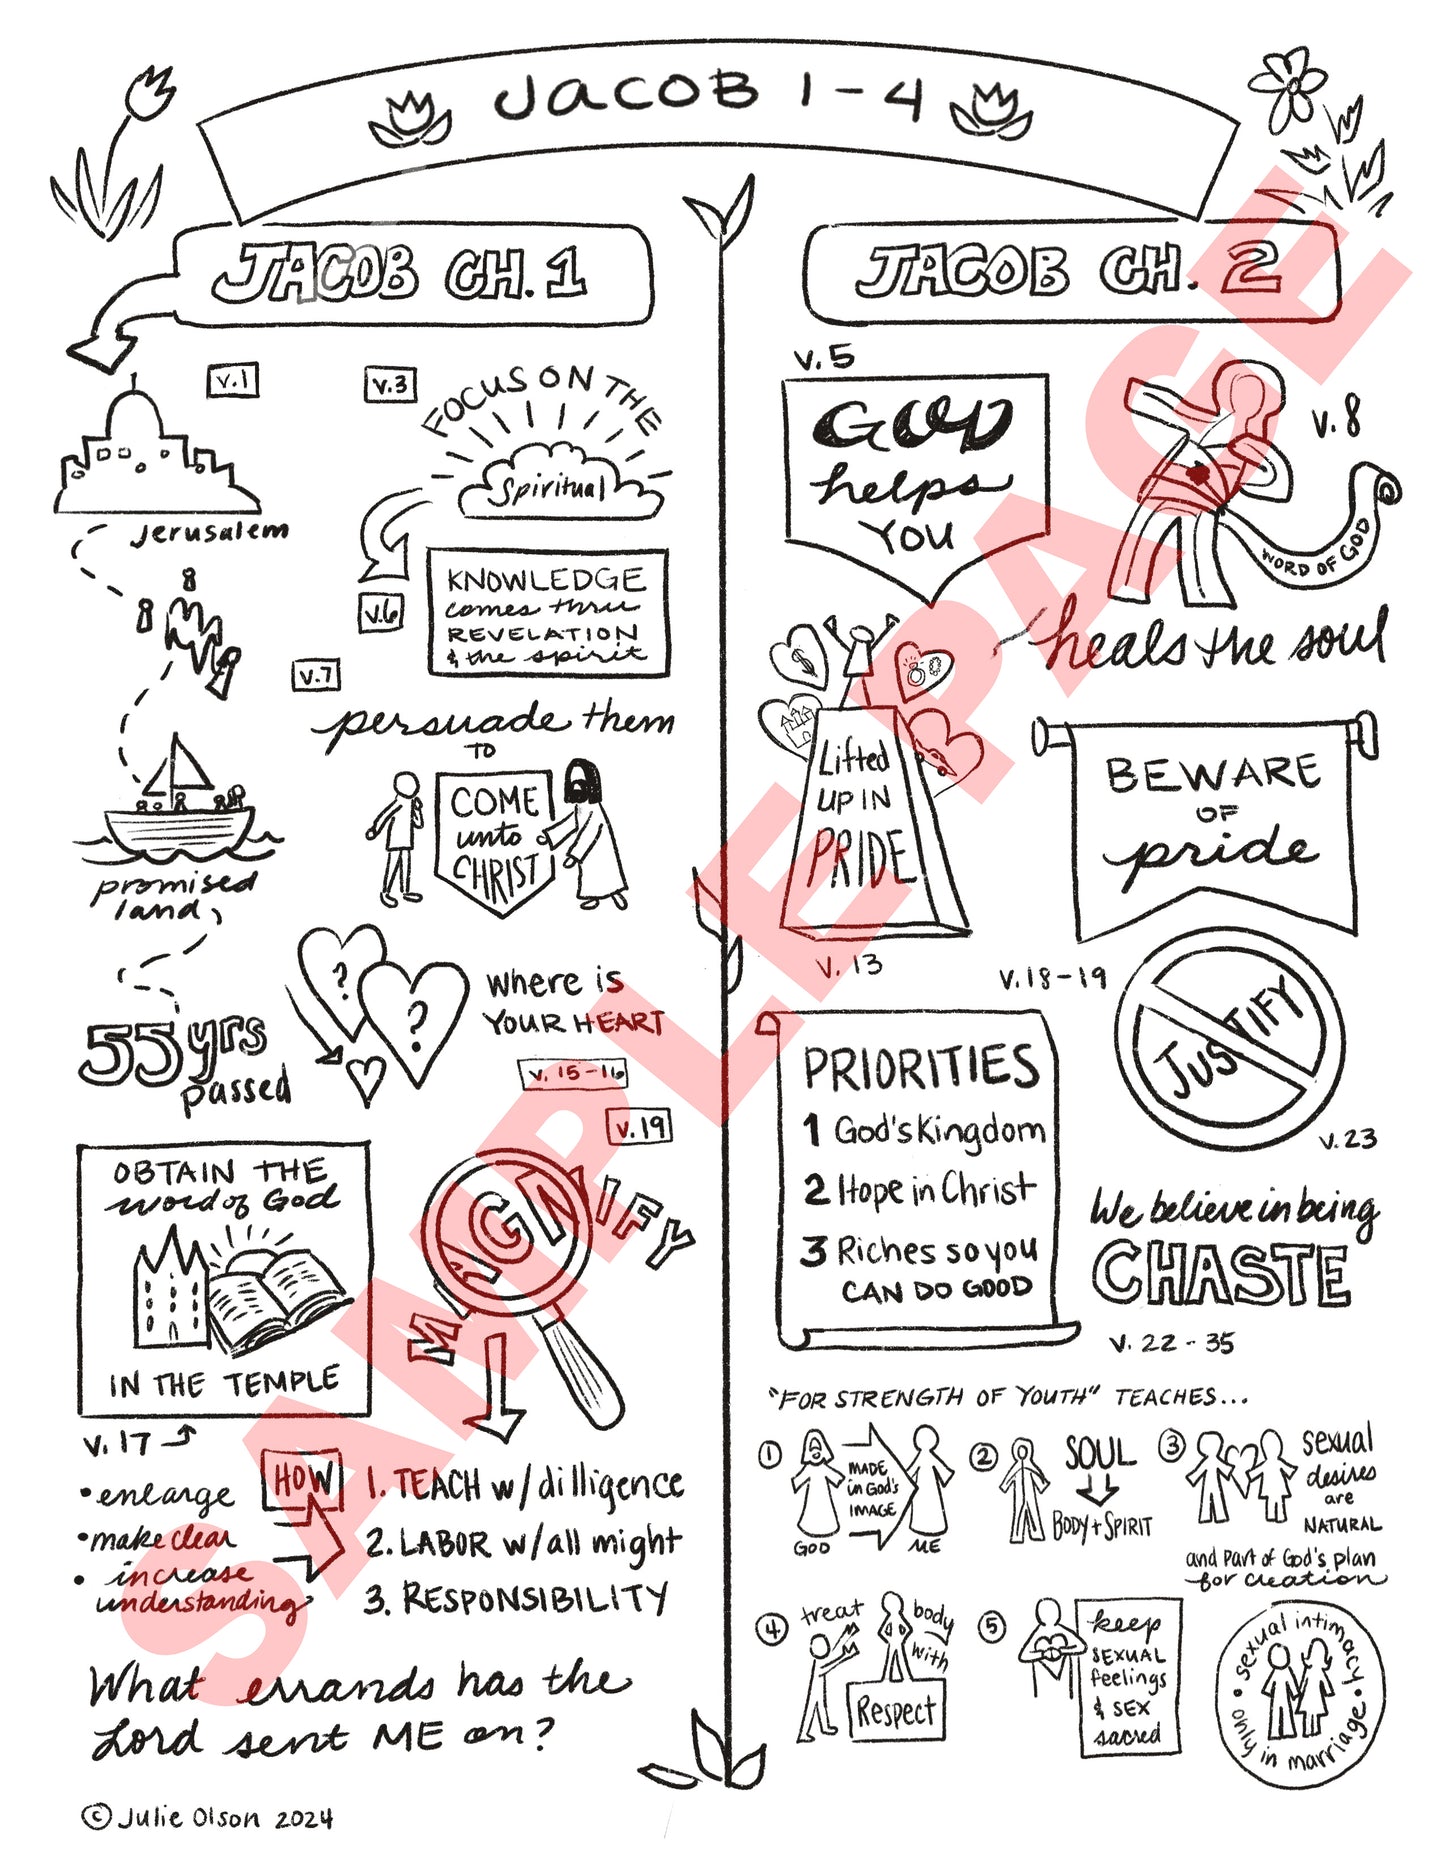 JACOB 1-4
JACOB CH. 1
v.1
Jerusalem
promised
land
55 yrs
passed
v.3
FOCUS ON THE
Spiritual
v.6
KNOWLEDGE
comes thru
REVELATION
& the spirit
v.7
persuade them
TO
COME
unto
CHRIST
?
?
where is
YOUR HEART
v. 15-16
OBTAIN THE
word of God
IN THE TEMPLE
v. 17
v.19
MAGNIFY
• enlarge
• make clear
• increase
understanding
HOW
1. TEACH w/ dilligence
2. LABOR w/ all might
3. RESPONSIBILITY
What errands has the
Lord sent ME on?
© Julie Olson 2024
JACOB CH. 2
v.5
GOD
helps
YOU
v.8
WORD OF GOD
heals the soul
$
Lifted
UP IN
PRIDE
v. 13
BEWARE
OF
pride
v.18-19
PRIORITIES
1 God's Kingdom
2 Hope in Christ
3 Riches so you
CAN DO GOOD
JUSTIFY
v.23
We believe in being
CHASTE
v. 22-35
"FOR STRENGTH OF YOUTH" TEACHES...
1
MADE
in God's
IMAGE
GOD
ME
2
SOUL
BODY + SPIRIT
3
sexual
desires
are
NATURAL
and part of God's plan
for creation
4
treat
body
with
Respect
5
keep
SEXUAL
feelings
& SEX
sacred
• sexual intimacy •
only in marriage
SAMPLE PAGE